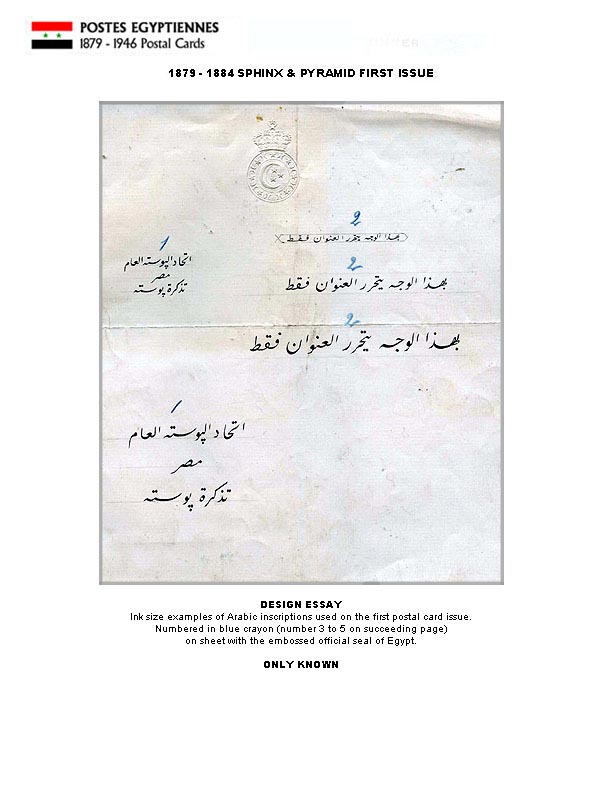 POSTES EGYPTIENNES
1879 - 1946 Postal Cards
1879 - 1884 SPHINX & PYRAMID FIRST ISSUE
2
بهذا الوجه يتحرر العنوان فقط
1
اتحاد البوسته العام
مصر
تذكرة بوسته
2
بهذا الوجه يتحرر العنوان فقط
2
بهذا الوجه يتحرر العنوان فقط
1
اتحاد البوسته العام
مصر
تذكرة بوسته
DESIGN ESSAY
Ink size examples of Arabic inscriptions used on the first postal card issue.
Numbered in blue crayon (number 3 to 5 on succeeding page)
on sheet with the embossed official seal of Egypt.
ONLY KNOWN